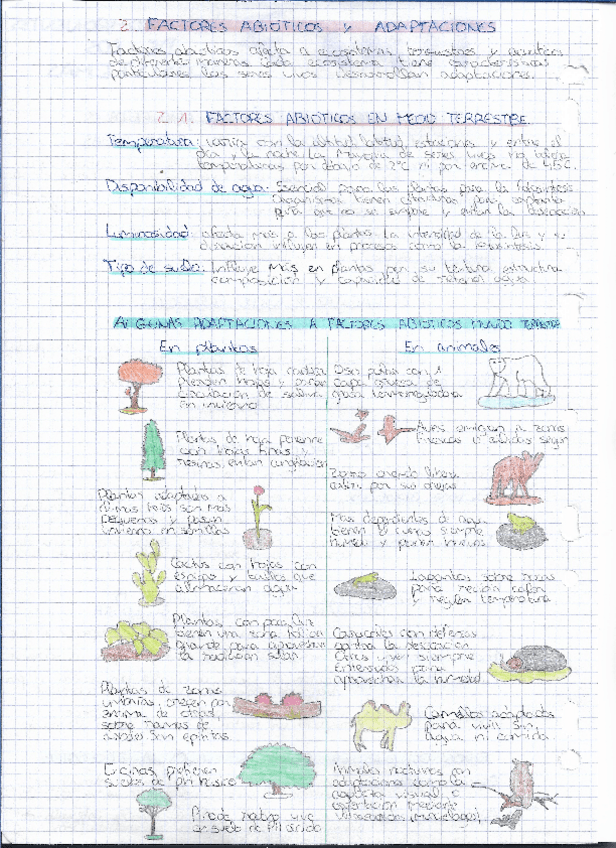 2. FACTORES ABIÓTICOS Y ADAPTACIONES
Factores abióticos afecta a ecosistemas terrestres y acuáticos
de diferentes maneras cada ecosistema tiene características
particulares. Los seres vivos desarrollan adaptaciones.
2.1. FACTORES ABIÓTICOS EN MEDIO TERRESTRE.
Temperatura: varía con la altitud, latitud, estaciones y entre el
día y la noche. La mayoría de seres vivos no tolera
temperaturas por debajo
Disponibilidad de agua: Esencial para las plantas para la fotosíntesis
Organismos tienen estructuras para captarla
para que no se evapore y evitan la desecación
Luminosidad: afecta más a las plantas. La intensidad de la luz y su
duración influyen en procesos como la fotosíntesis.
Tipo de suelo: Influye más en plantas por su textura, estructura
composición y capacidad de retener agua.
ALGUNAS ADAPTACIONES A FACTORES ABIÓTICOS MUNDO TERRESTRE
En plantas
En animales
Plantas de hoja caduca
pierden hojas y paran
circulación de savia
en invierno
Oso polar con
capa gruesa de
grasa
Plantas de hoja perenne
con hojas finas y
resinas, evitan congelación
Aves emigran a zonas
frescas o cálidas según
Zorro
por sus orejas
Plantas adaptadas a
hojas son más
pequeñas y pasan
invierno en semillas
Más dependientes de agua
tienen siempre
Cactus con hojas con
espinas y tallos que
almacenan agua
Lagartos sobre rocas
para recibir calor
y regular temperatura
Plantas con poca luz
tienen una zona foliar
grande para aprovechar
la radiación solar
Caracoles con defensas
contra la desecación
Otros viven siempre
enterrados para
aprovechar la humedad
Plantas de zonas
umbrías, crecen por
encima de otras,
sobre ramas de
árboles
Camellos adaptados
para vivir sin
agua ni comida.
Encinas prefieren
suelos de pH básico
Pino de vive
en suelo de pH ácido
Animales nocturnos con
adaptaciones como la
capacidad visual o
orientación mediante
(murciélago)